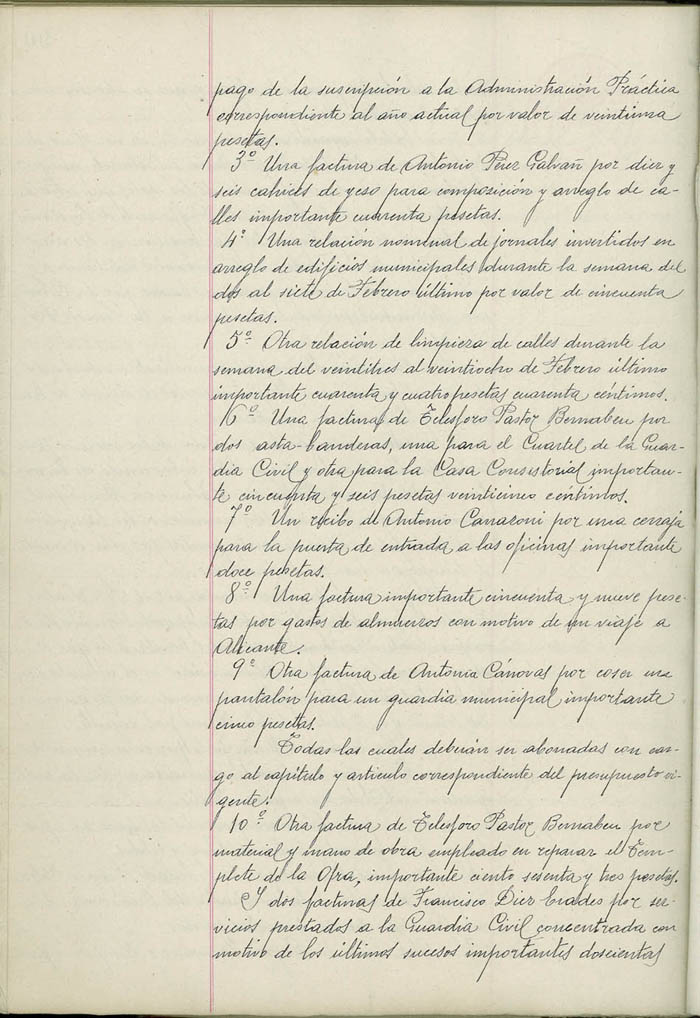 pago de la suscripción a la Administración Práctica
correspondiente al año actual por valor de veintiuna
pesetas.
3º Una factura de Antonio Perez Galvañ por diez y
seis cahices de yeso para composición y arreglo de ca-
lles importante cuarenta pesetas.
4º Una relación nominal de jornales invertidos en
arreglo de edificios municipales durante la semana del
dos al siete de Febrero último por valor de cincuenta
pesetas.
5º Otra relación de limpieza de calles durante la
semana del veintitres al veintiocho de Febrero último
importante cuarenta y cuatro pesetas cuarenta céntimos.
6º Una factura de Telesforo Pastor Bernabeu por
dos asta-banderas, una para el Cuartel de la Guar-
dia Civil y otra para la Casa Consistorial importan-
te cincuenta y seis pesetas veinticinco céntimos.
7º Un recibo de Antonio Canazoni por una cerraja
para la puerta de entrada a las oficinas importante
doce pesetas.
8º Una factura importante cincuenta y nueve pese-
tas por gastos de almuerzos con motivo de un viaje a
Alicante.
9º Otra factura de Antonia Cánovas por coser un
pantalón para un guardia municipal importante
cinco pesetas.
Todas las cuales deberán ser abonadas con car-
go al capítulo y articulo correspondiente del presupuesto vi-
gente.
10º Otra factura de Telesforo Pastor Bernabeu por
material y mano de obra empleado en reparar el Tem-
plete de la Ofra, importante ciento sesenta y tres pesetas.
Y dos facturas de Francisco Diez por ser-
vicios prestados a la Guardia Civil concentrada con
motivo de los últimos sucesos importantes doscientas